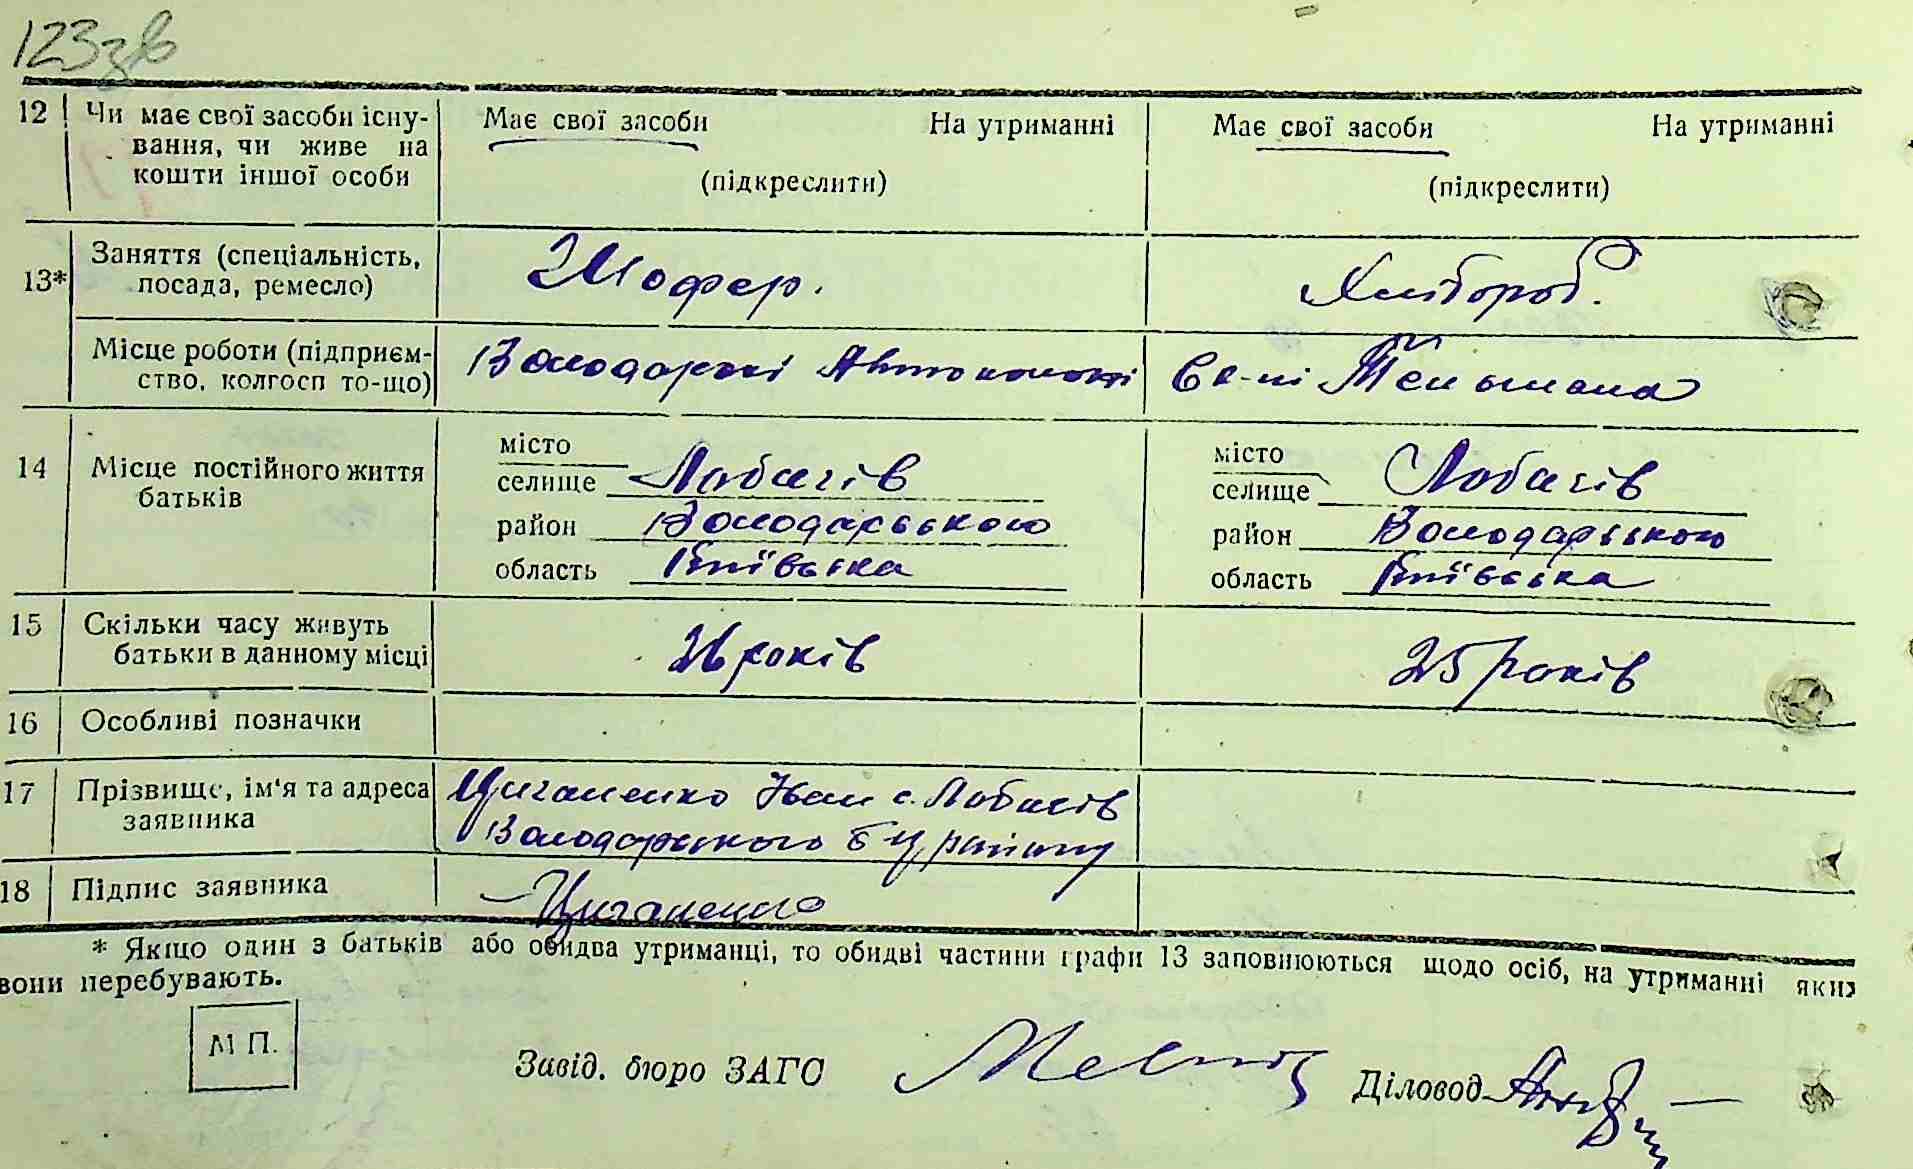 123зв
12 Чи має свої засоби існу- Має свої засоби На утриманні Має свої засоби На утриманні
вання, чи живе на
кошти іншої особи (підкреслити) (підкреслити)
13* Заняття (спеціальність, Шофер. Хлібороб.
посада, ремесло)
Місце роботи (підприєм- Володарські Автоколоні В к-пі Тельмана
ство, колгосп то-що)
14 Місце постійного життя місто місто
батьків селище Лобачів селище Лобачів
район Володарського район Володарського
область Київська область Київська
15 Скільки часу живуть 26 років 25 років
батьки в данному місці
16 Особливі позначки
17 Прізвище, ім'я та адреса Циганенко Іван с. Лобачів
заявника Володарського Б Ц району
18 Підпис заявника Циганенко
* Якщо один з батьків або обидва утриманці, то обидві частини графи 13 заповнюються щодо осіб, на утриманні яких
вони перебувають.
М П.
Завід. бюро ЗАГС Діловод